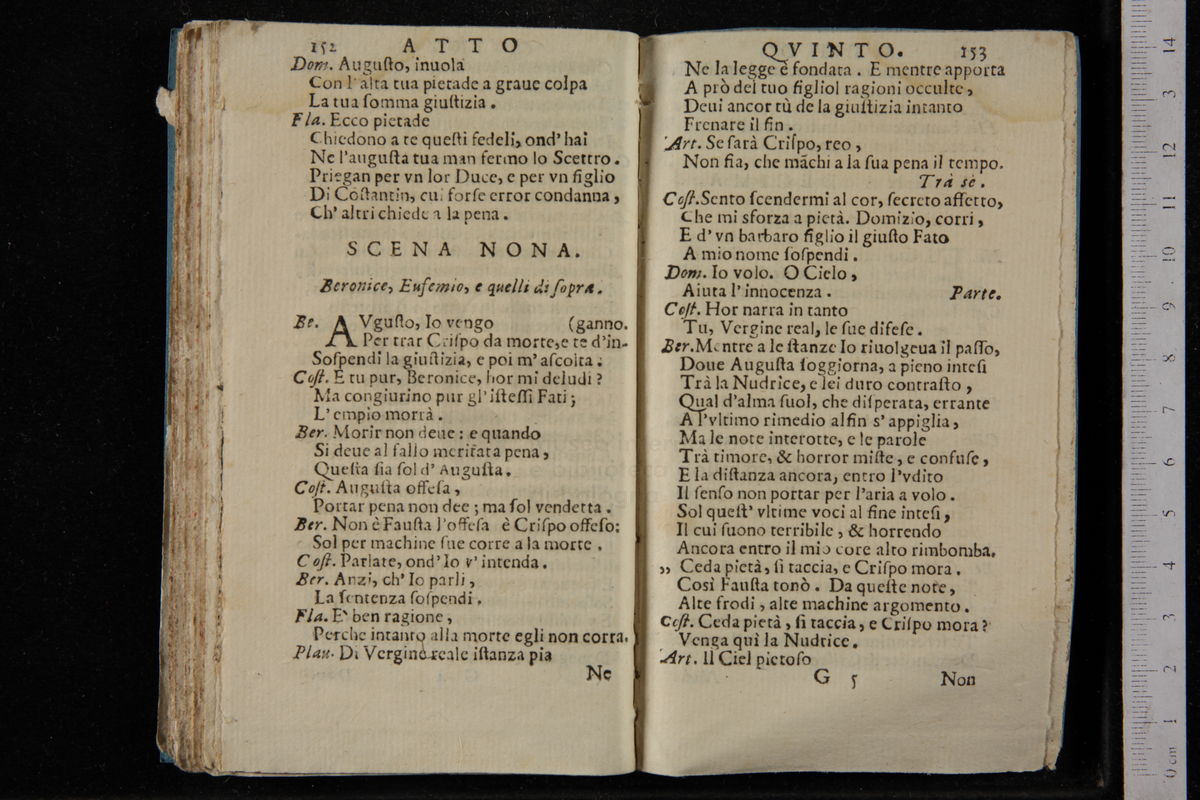 152 ATTO
Dom. Auguſto, inuola
Con l'alta tua pietade a graue colpa
La tua ſomma giuſtizia.
Fla. Ecco pietade
Chiedono a te queſti fedeli, ond' hai
Ne l'auguſta tua man fermo lo Scettro.
Priegan per vn lor Duce, e per vn figlio
Di Coſtantin, cui forſe error condanna,
Ch' altri chiede a la pena.
SCENA NONA.
Beronice, Eufemio, e quelli di ſopra.
Be. AVguſto, Io vengo (ganno.
Per trar Criſpo da morte, e te d'in-
Soſpendi la giuſtizia, e poi m' aſcolta:
Coſt. E tu pur, Beronice, hor mi deludi?
Ma congiurino pur gl' iſteſſi Fati;
L' empio morrà.
Ber. Morir non deue: e quando
Si deue al fallo meritata pena,
Queſta ſia ſol d' Auguſta.
Coſt. Auguſta offeſa,
Portar pena non dee; ma ſol vendetta.
Ber. Non è Fauſta l'offeſa è Criſpo offeſo:
Sol per machine ſue corre a la morte.
Coſt. Parlate, ond' Io v' intenda.
Ber. Anzi, ch' Io parli,
La ſentenza ſoſpendi.
Fla. E' ben ragione,
Perche intanto alla morte egli non corra.
Plau. Di Vergine reale iſtanza pia
Ne
QVINTO. 153
Ne la legge è fondata. E mentre apporta
A prò del tuo figliol ragioni occulte,
Deui ancor tù de la giuſtizia intanto
Frenare il fin.
Art. Se ſarà Criſpo, reo,
Non fia, che mãchi a la ſua pena il tempo.
Trà sè.
Coſt. Sento ſcendermi al cor, ſecreto affetto,
Che mi sforza a pietà. Domizio, corri,
E d' vn barbaro figlio il giuſto Fato
A mio nome ſoſpendi.
Dom. Io volo. O Cielo,
Aiuta l' innocenza. Parte.
Coſt. Hor narra in tanto
Tu, Vergine real, le ſue difeſe.
Ber. Mentre a le ſtanze Io riuolgeua il paſſo,
Doue Auguſta ſoggiorna, a pieno inteſi
Trà la Nudrice, e lei duro contraſto,
Qual d'alma ſuol, che diſperata, errante
A l'vltimo rimedio alfin s' appiglia,
Ma le note interotte, e le parole
Trà timore, & horror miſte, e confuſe,
E la diſtanza ancora, entro l'vdito
Il ſenſo non portar per l'aria a volo.
Sol queſt' vltime voci al fine inteſi,
Il cui ſuono terribile, & horrendo
Ancora entro il mio core alto rimbomba.
„ Ceda pietà, ſi taccia, e Criſpo mora.
Così Fauſta tonò. Da queſte note,
Alte frodi, alte machine argomento.
Coſt. Ceda pietà, ſi taccia, e Criſpo mora?
Venga quì la Nudrice.
Art. Il Ciel pietoſo
G 5 Non
0 cm 1 2 3 4 5 6 7 8 9 10 11 12 13 14